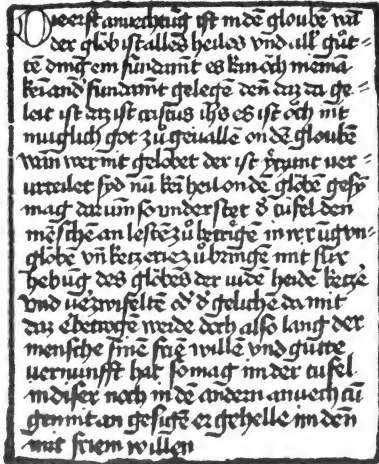 Die erst anvechtūg ist in dē gloubē wā
der glob ist alles heiles vnd all' gůt-
tē dinḡ ein fundamēt es kan och niemā
kein and' fundamēt gelegē den daz da ge-
leit ist daz ist cristus ihs es ist och nit
muglich got zů geuallē on dē gloubē
wan wer nit gelobet der ist ietzunt ver-
urteilet syd nū kein heil on dē globē gesy
mag dar um so vnderstet d' tufel den
mēschē an lestē zů betrogē in
globē vn̄ ketzerie zů bringē mit für
hebūg des globēs der iudē heidē ketze
vnd verzwifeltē od' d' gelichē da mit
daz betrogē werde doch also lang der
mensche sinē friē willē vnd gūtte
vernunfft hat so mag im der tufel
in diser noch in dē andern anvech tū
gen nit an gesigē er gehelle im den
mit friem willen